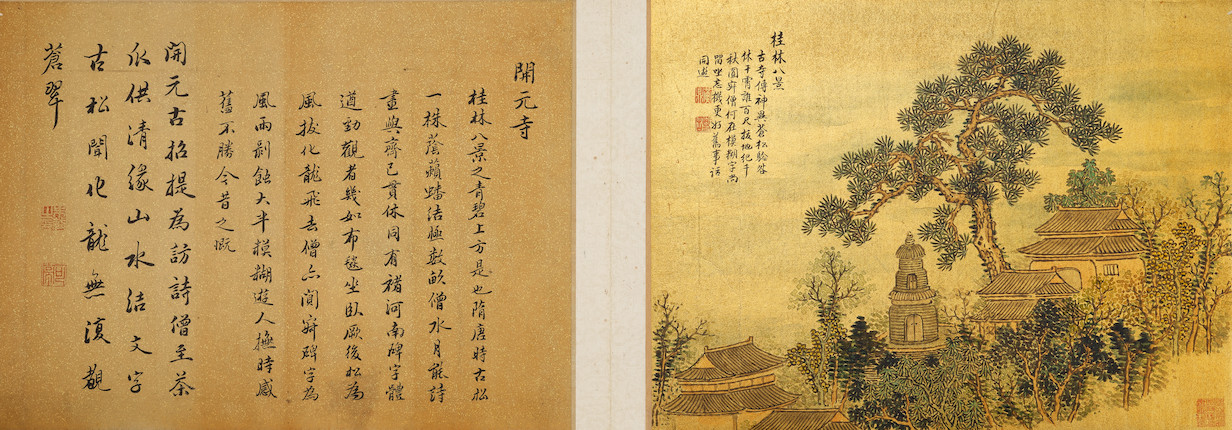 桂林八景
古寺傳神與蒼松驗
休干霄誰百尺拔地紀千
秋圓寂僧何在模糊字尚
留坐忘機更好舊事話
同遊
開元寺
桂林八景之青碧上方是也隋唐時古松
一株蔭蘋蟠結極數畝僧水月能詩
畫與齊己貫休同有褚河南碑字體
遒勁觀者幾如布毯坐臥厥後松為
風拔化龍飛去僧亦圓寂碑字為
風雨剝蝕大半模糊遊人撫時感
舊不勝今昔之慨
開元古招提為訪詩僧至茶
瓜供清緣山水結文字
古松聞化龍無復覩
蒼翠